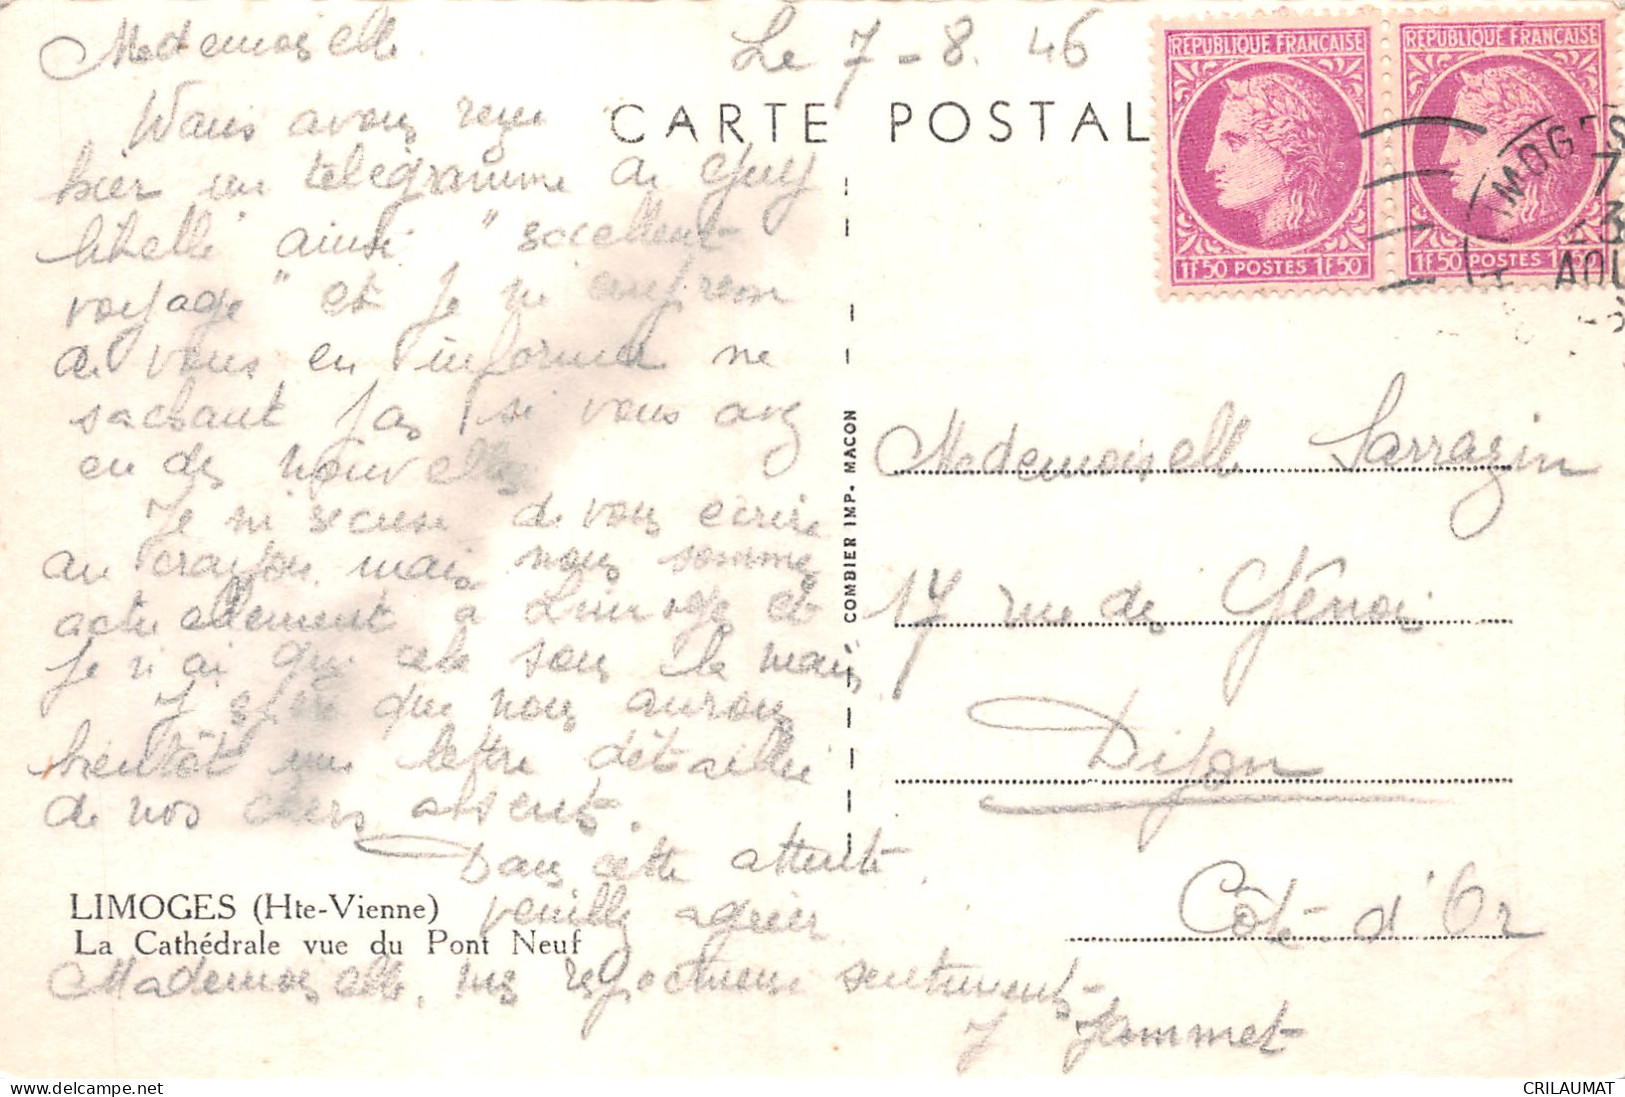 Mademoiselle
Le 7-8. 46
CARTE POSTALE
Nous avons reçu
hier un télégramme de Guy
libellé ainsi "excellent
voyage" et je m'empresse
de vous en informer ne
sachant pas si vous avez
eu des nouvelles
Je m'excuse de vous écrire
au crayon mais nous sommes
actuellement à Limoges et
je n'ai que cela sous la main
J'espère que nous aurons
bientôt une lettre détaillée
de nos chers absents.
Dans cette attente
veuillez agréer
Mademoiselle, mes respectueux sentiments
J Jammet
LIMOGES (Hte-Vienne)
La Cathédrale vue du Pont Neuf
COMBIER IMP. MACON
REPUBLIQUE FRANÇAISE
1F50 POSTES 1F50
REPUBLIQUE FRANÇAISE
1F50 POSTES
MOGES
AOU
Mademoiselle Sarrazin
17 rue de
Dijon
Côte-d'Or
CRILAUMAT
delcampe.net